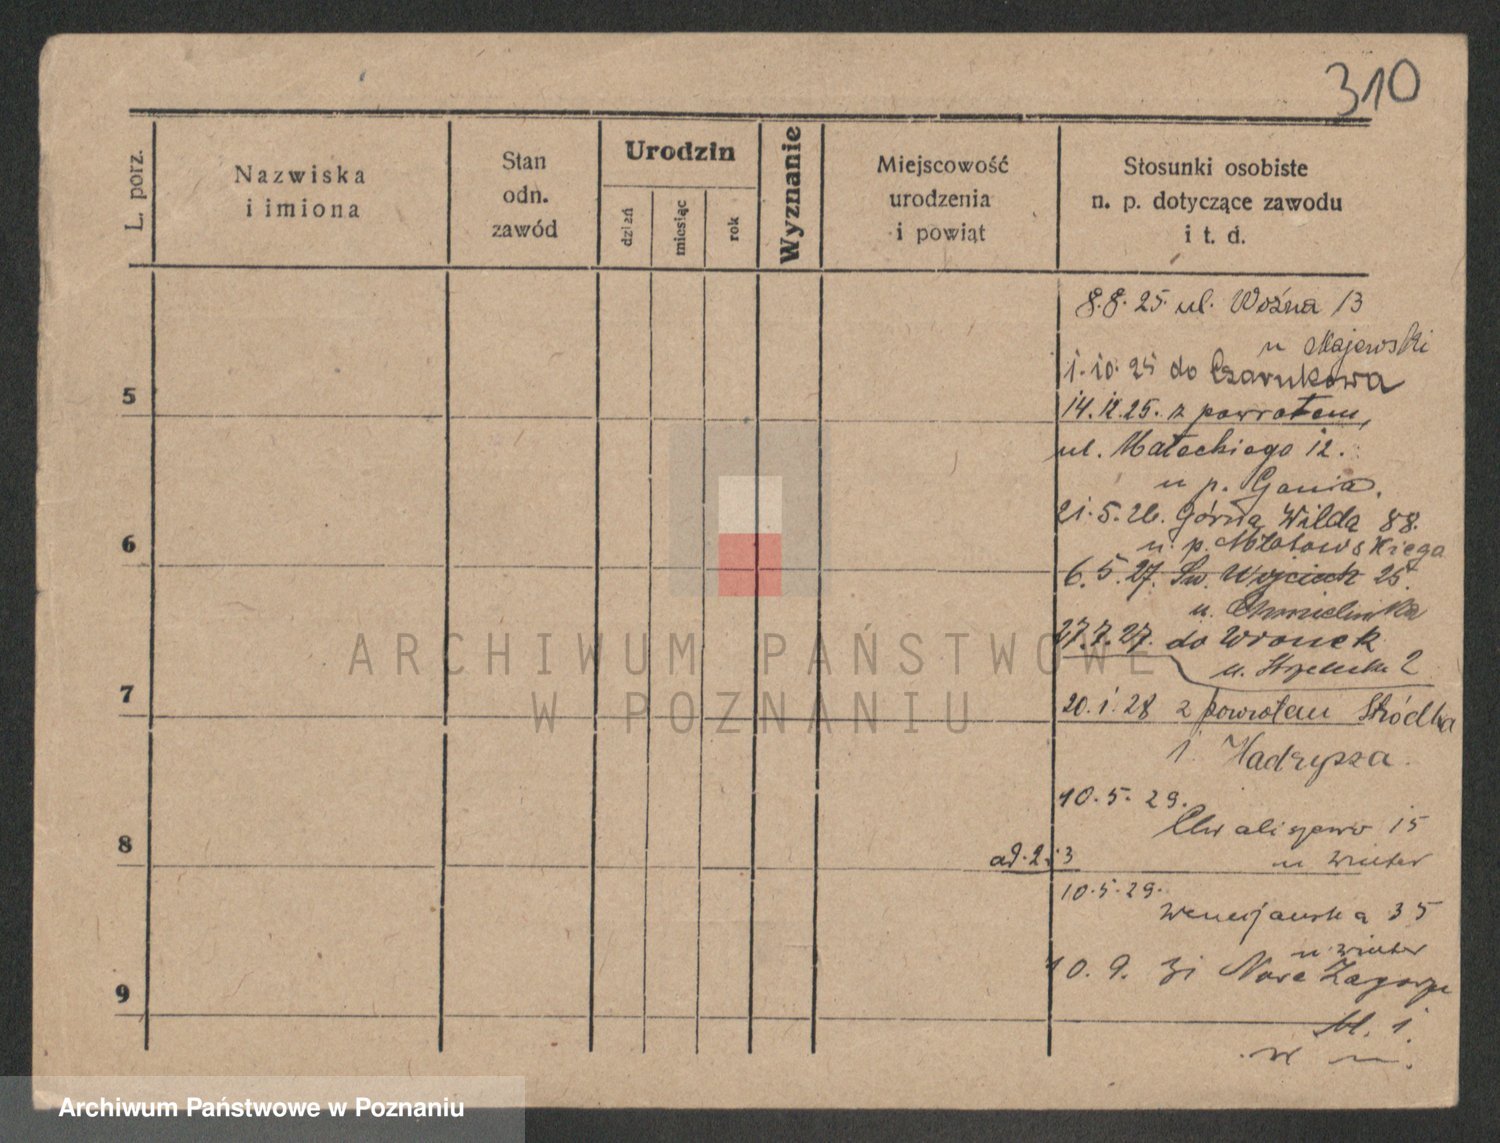 310
L. porz.
Nazwiska
i imiona
Stan
odn.
zawód
Urodzin
dzień
miesiąc
rok
Wyznanie
Miejscowość
urodzenia
i powiąt
Stosunki osobiste
n. p. dotyczące zawodu
i t. d.
8.8.25 ul. Woźna 13
u Majewski
1.10.25 do Czarnkowa
5
14.12.25. z powrotem,
ul. Małeckiego 12.
u p. Gania.
21.5.26. Górna Wilda 88.
6
u. p.
6.5.27. Św. Wojciech 25.
u.
27.7.27. do Wronek
u. 2
7
20.1.28 z powrotem Śródka
1. Hadrysza.
10.5.29.
Chwaliszewo 15
8
ad. 2 i 3
u Winter
10.5.29.
Wenecjańska 35
u Winter
10.9. 31 Nowe Zagorze
9
bl. 1.
ARCHIWUM PAŃSTWOWE
W POZNANIU
Archiwum Państwowe w Poznaniu